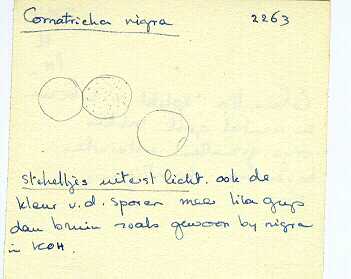 Comatricha nigra 2263
stekeltjes uiterst licht. ook de
kleur v.d. sporen meer lila grijs
dan bruin zoals gewoon by nigra
in KOH.